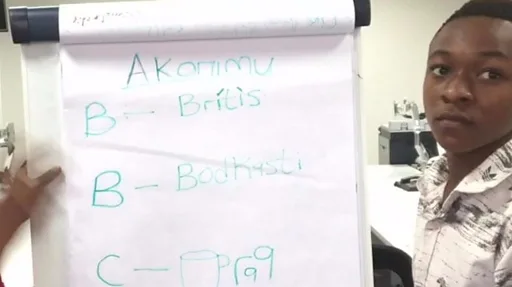 AKonimu
B — Britis
B — Bodkasti
C —